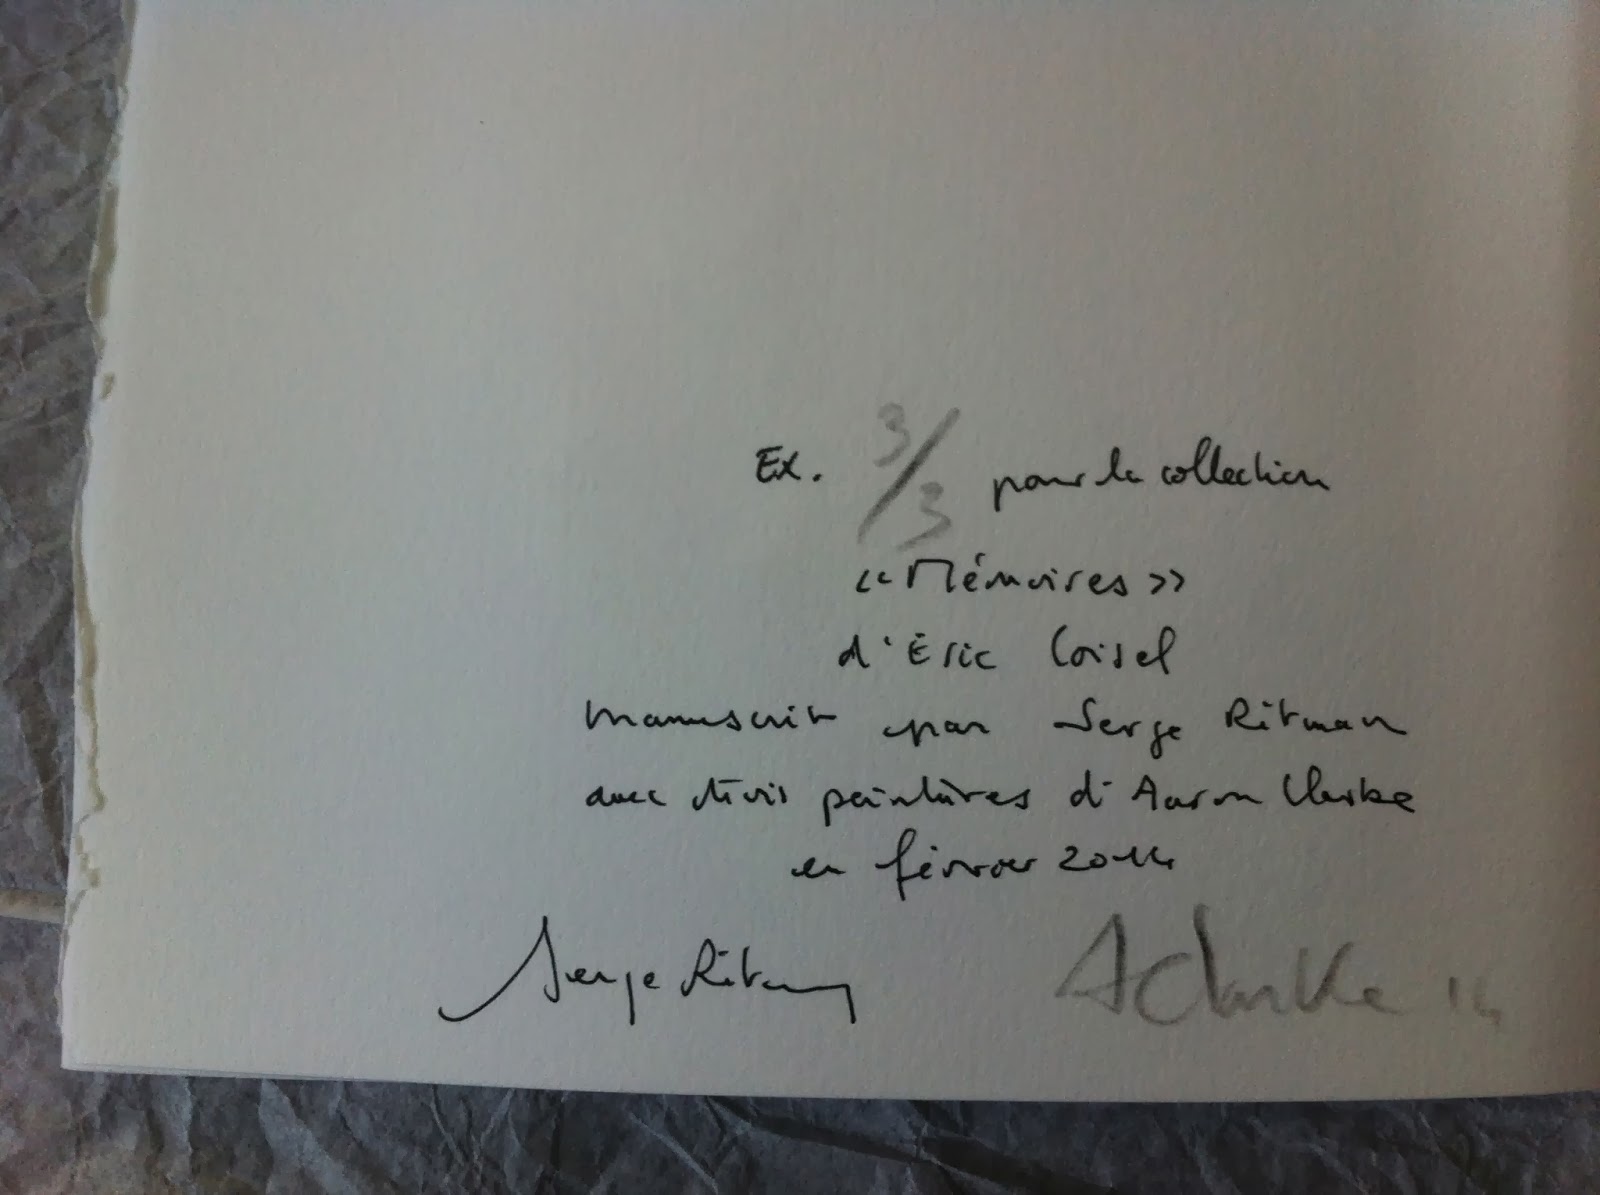 Ex. 3/3 pour la collection
« Mémoires »
d'Éric Coisel
manuscrit par Serge Ritman
avec trois peintures d'Aaron Clarke
en février 2014
Serge Ritman
AClarke 14